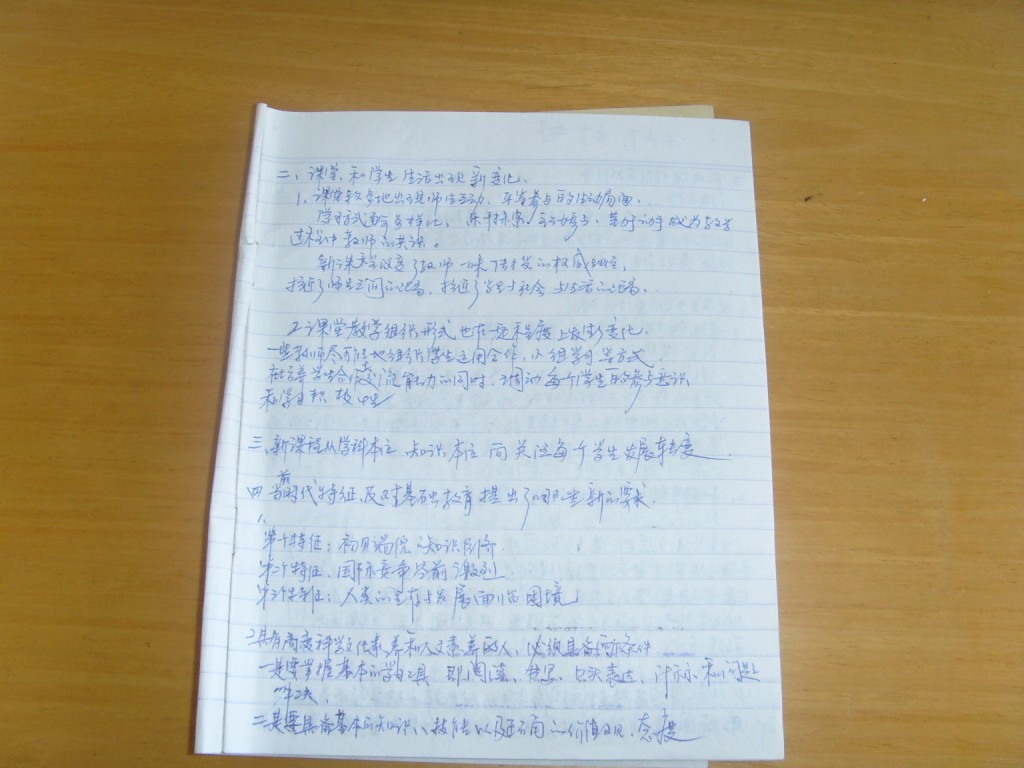 二、课堂和学生生活出现新变化、
1、课堂较多地出现师生互动、平等参与的生动局面.
学习方式多样化、乐于探索、主动参与、勤于动手成为教学
过程中教师的共识。
新课程改变了教师一味传授的权威地位,
拉近了师生之间的距离,拉近了学生与社会与生活的距离.
2 课堂教学组织形式也在一定程度上发生变化.
一些教师尽可能地组织学生运用合作、小组学习等方式
在培养学生合作交流能力的同时、调动每个学生的参与意识
和学习积极性
三、新课程从学科本位、知识本位向关注每个学生发展转变
四 当前时代特征及对基础教育提出了哪些新的要求
1、
第一个特征:初见端倪的知识经济
第二个特征、国际竞争空前激烈
第三个特征:人类的生存与发展面临困境
2具有高度科学文化素养和人文素养的人,必须具备两个条件
一是要掌握基本的学习工具 即阅读、书写、口头表达、计算和问题
解决.
二是要具备基本的知识、技能以及正确的价值观、态度